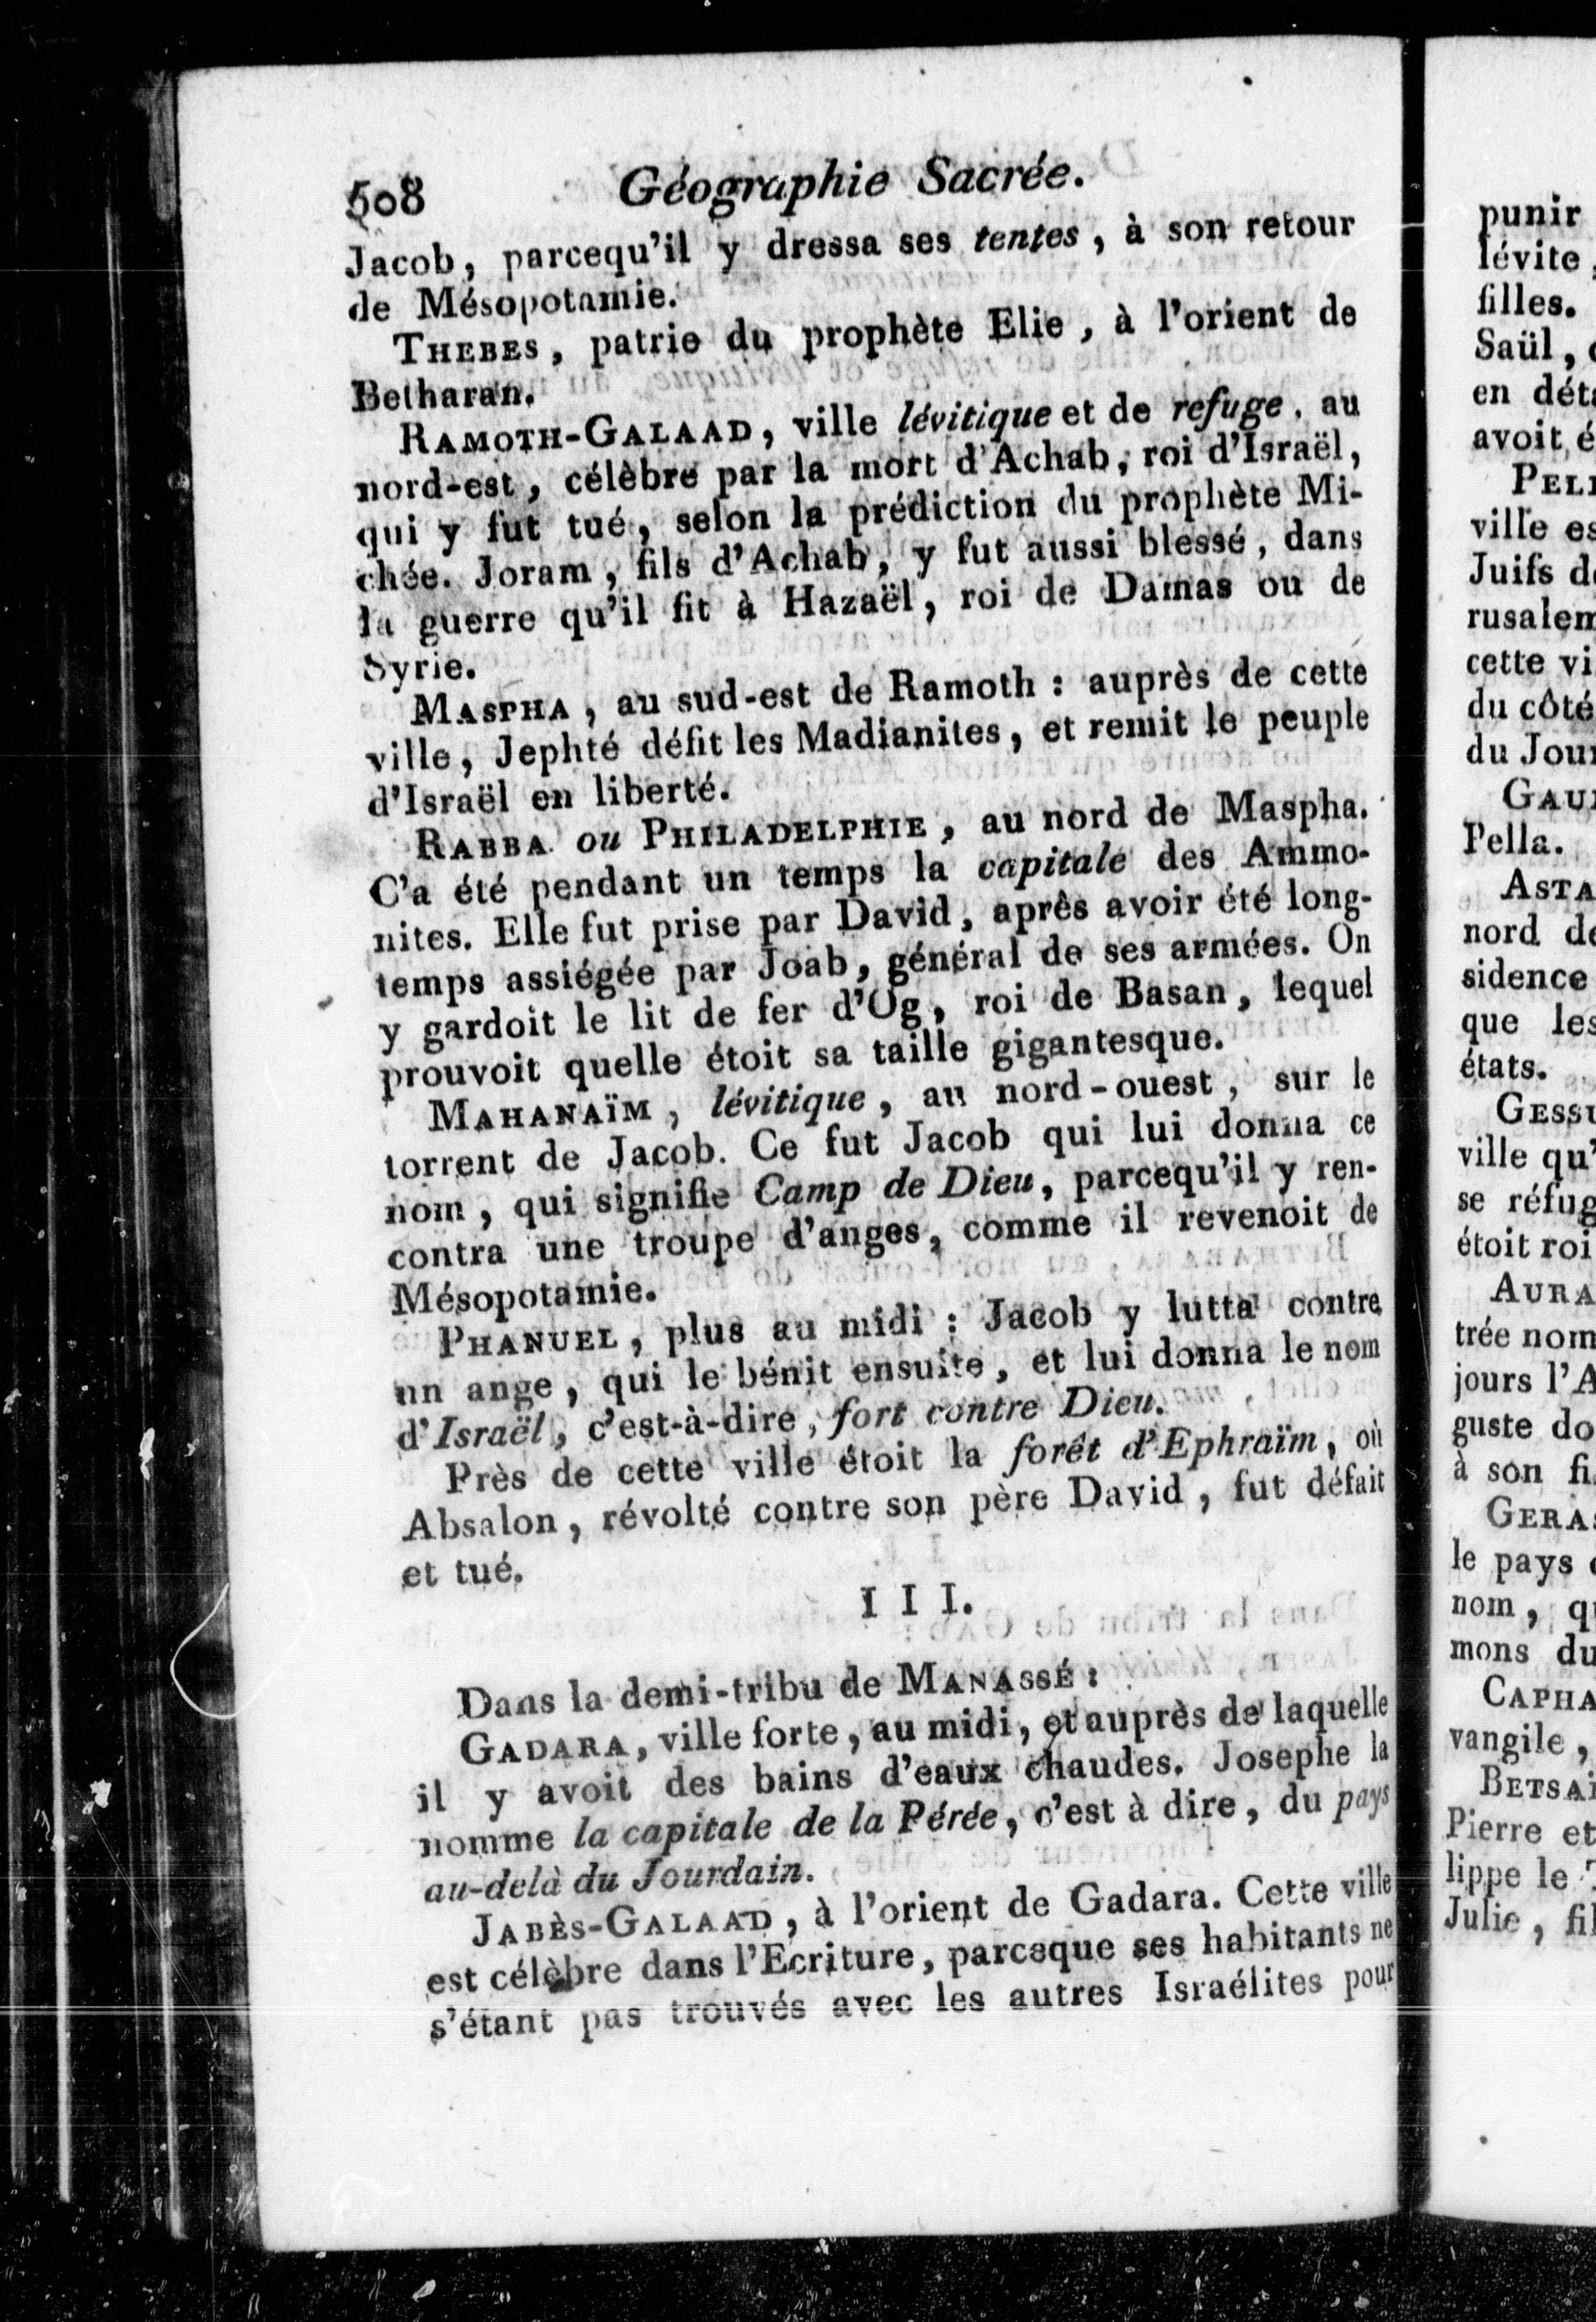 508 Géographie Sacrée.
Jacob, parcequ'il y dressa ses tentes, à son retour
de Mésopotamie.
THEBES, patrie du prophète Elie, à l'orient de
Betharan.
RAMOTH-GALAAD, ville lévitique et de refuge, au
nord-est, célèbre par la mort d'Achab, roi d'Israël,
qui y fut tué, selon la prédiction du prophète Mi-
chée. Joram, fils d'Achab, y fut aussi blessé, dans
la guerre qu'il fit à Hazaël, roi de Damas ou de
Syrie.
MASPHA, au sud-est de Ramoth : auprès de cette
ville, Jephté défit les Madianites, et remit le peuple
d'Israël en liberté.
RABBA ou PHILADELPHIE, au nord de Maspha.
C'a été pendant un temps la capitale des Ammo-
nites. Elle fut prise par David, après avoir été long-
temps assiégée par Joab, général de ses armées. On
y gardoit le lit de fer d'Og, roi de Basan, lequel
prouvoit quelle étoit sa taille gigantesque.
MAHANAÏM, lévitique, au nord-ouest, sur le
torrent de Jacob. Ce fut Jacob qui lui donna ce
nom, qui signifie Camp de Dieu, parcequ'il y ren-
contra une troupe d'anges, comme il revenoit de
Mésopotamie.
PHANUEL, plus au midi : Jacob y lutta contre
un ange, qui le bénit ensuite, et lui donna le nom
d'Israël, c'est-à-dire, fort contre Dieu.
Près de cette ville étoit la forêt d'Ephraïm, où
Absalon, révolté contre son père David, fut défait
et tué.
III.
Dans la demi-tribu de MANASSÉ :
GADARA, ville forte, au midi, et auprès de laquelle
il y avoit des bains d'eaux chaudes. Josephe la
nomme la capitale de la Pérée, c'est à dire, du pays
au-delà du Jourdain.
JABÈS-GALAAD, à l'orient de Gadara. Cette ville
est célèbre dans l'Ecriture, parceque ses habitants ne
s'étant pas trouvés avec les autres Israélites pour
punir
lévite,
filles.
Saül,
en
avoit
ville
Juifs
cette
du côté
du
Pella.
nord
sidence
que les
états.
ville qu'
se
étoit roi
trée
jours
guste
à son
le pays
nom,
mons du
vangile,
Pierre et
lippe le
Julie,